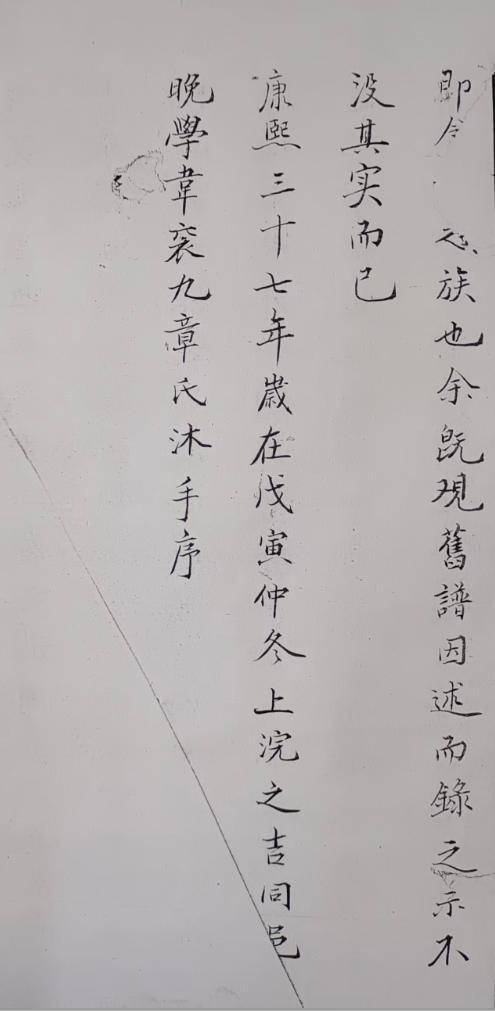 即今 之族也余既观舊譜因述而錄之示不
没其实而已
康熙三十七年歲在戊寅仲冬上浣之吉同邑
晚學韋裘九章氏沐手序